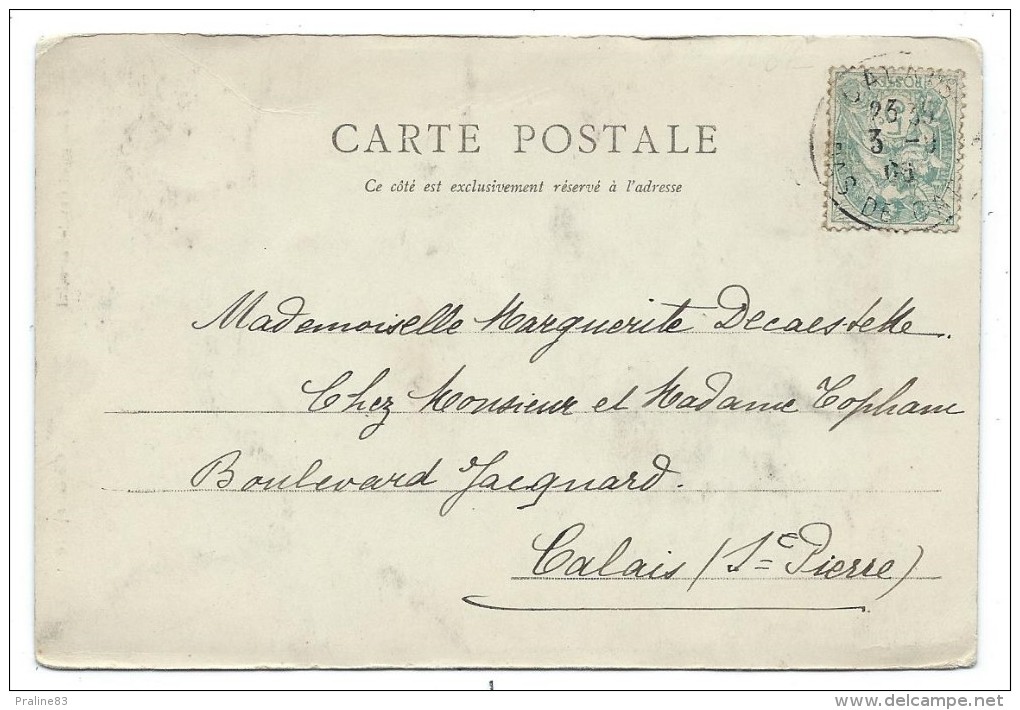 CARTE POSTALE
Ce côté est exclusivement réservé à l'adresse
CALAIS
3
PAS DE
Mademoiselle Marguerite Decaestekke.
Chez Monsieur et Madame Topham
Boulevard Jacquard.
Calais (St Pierre)
Praline83
www.delcampe.net